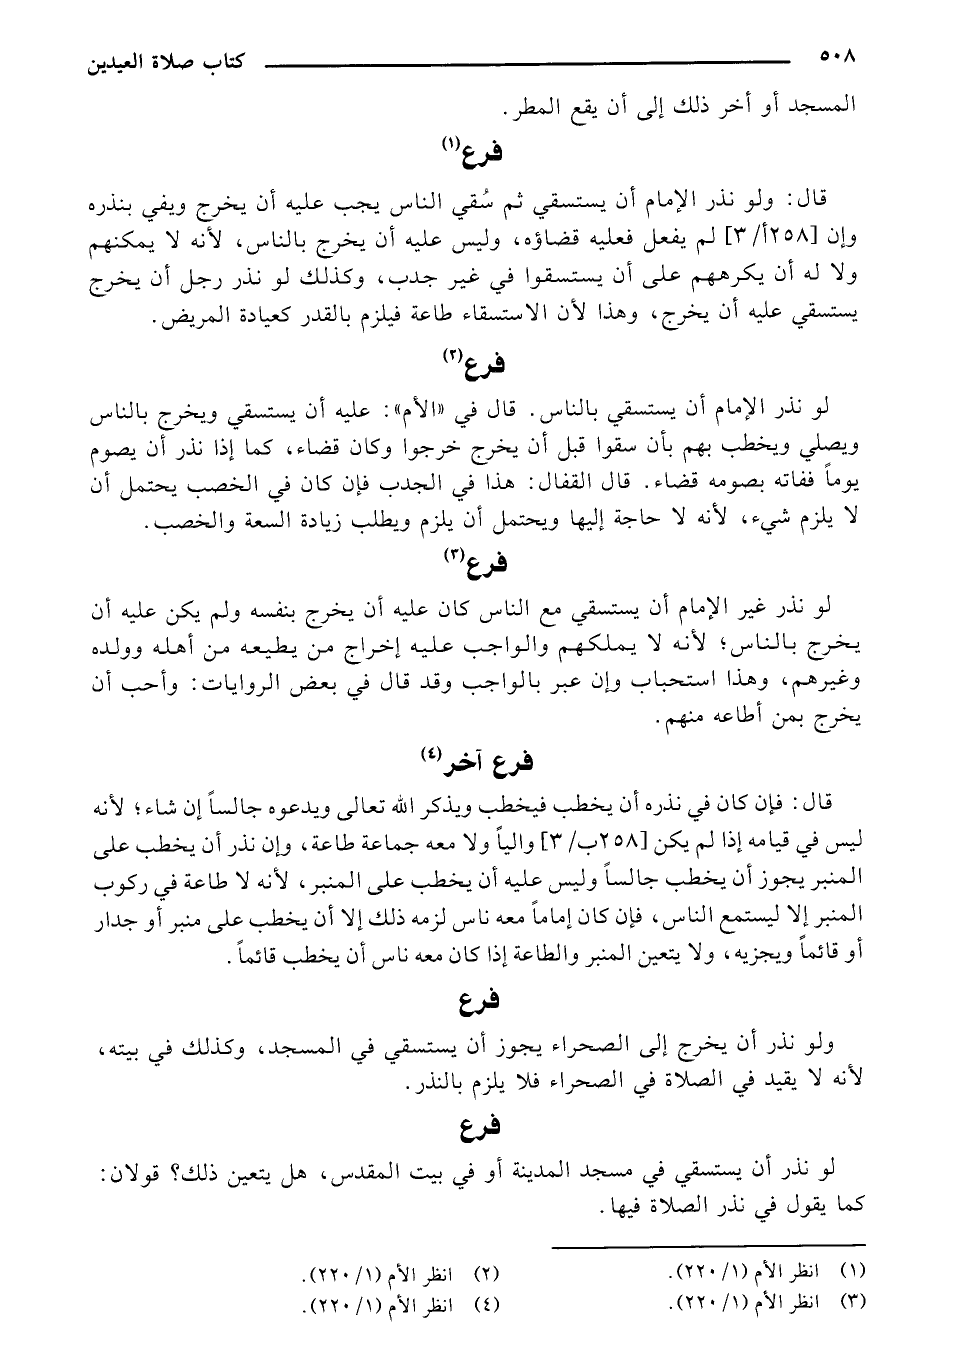 ٥٠٨ كتاب صلاة العيدين
المسجد أو أخر ذلك إلى أن يقع المطر.
فرع(١)
قال: ولو نذر الإمام أن يستسقي ثم سُقي الناس يجب عليه أن يخرج ويفي بنذره
وإن [٢٥٨أ/ ٣] لم يفعل فعليه قضاؤه، وليس عليه أن يخرج بالناس، لأنه لا يمكنهم
ولا له أن يكرههم على أن يستسقوا في غير جدب، وكذلك لو نذر رجل أن يخرج
يستسقي عليه أن يخرج، وهذا لأن الاستسقاء طاعة فيلزم بالقدر كعيادة المريض.
فرع(٢)
لو نذر الإمام أن يستسقي بالناس. قال في «الأم»: عليه أن يستسقي ويخرج بالناس
ويصلي ويخطب بهم بأن سقوا قبل أن يخرج خرجوا وكان قضاء، كما إذا نذر أن يصوم
يوماً ففاته بصومه قضاء. قال القفال: هذا في الجدب فإن كان في الخصب يحتمل أن
لا يلزم شيء، لأنه لا حاجة إليها ويحتمل أن يلزم ويطلب زيادة السعة والخصب.
فرع(٣)
لو نذر غير الإمام أن يستسقي مع الناس كان عليه أن يخرج بنفسه ولم يكن عليه أن
يخرج بالناس؛ لأنه لا يملكهم والواجب عليه إخراج من يطيعه من أهله وولده
وغيرهم، وهذا استحباب وإن عبر بالواجب وقد قال في بعض الروايات: وأحب أن
يخرج بمن أطاعه منهم.
فرع آخر(٤)
قال: فإن كان في نذره أن يخطب فيخطب ويذكر الله تعالى ويدعوه جالساً إن شاء؛ لأنه
ليس في قيامه إذا لم يكن [٢٥٨ب/ ٣] والياً ولا معه جماعة طاعة، وإن نذر أن يخطب على
المنبر يجوز أن يخطب جالساً وليس عليه أن يخطب على المنبر، لأنه لا طاعة في ركوب
المنبر إلا ليستمع الناس، فإن كان إماماً معه ناس لزمه ذلك إلا أن يخطب على منبر أو جدار
أو قائماً ويجزيه، ولا يتعين المنبر والطاعة إذا كان معه ناس أن يخطب قائماً.
فرع
ولو نذر أن يخرج إلى الصحراء يجوز أن يستسقي في المسجد، وكذلك في بيته،
لأنه لا يقيد في الصلاة في الصحراء فلا يلزم بالنذر.
فرع
لو نذر أن يستسقي في مسجد المدينة أو في بيت المقدس، هل يتعين ذلك؟ قولان:
كما يقول في نذر الصلاة فيها.
(١) انظر الأم (١/ ٢٢٠). (٢) انظر الأم (١/ ٢٢٠).
(٣) انظر الأم (١/ ٢٢٠). (٤) انظر الأم (١/ ٢٢٠).